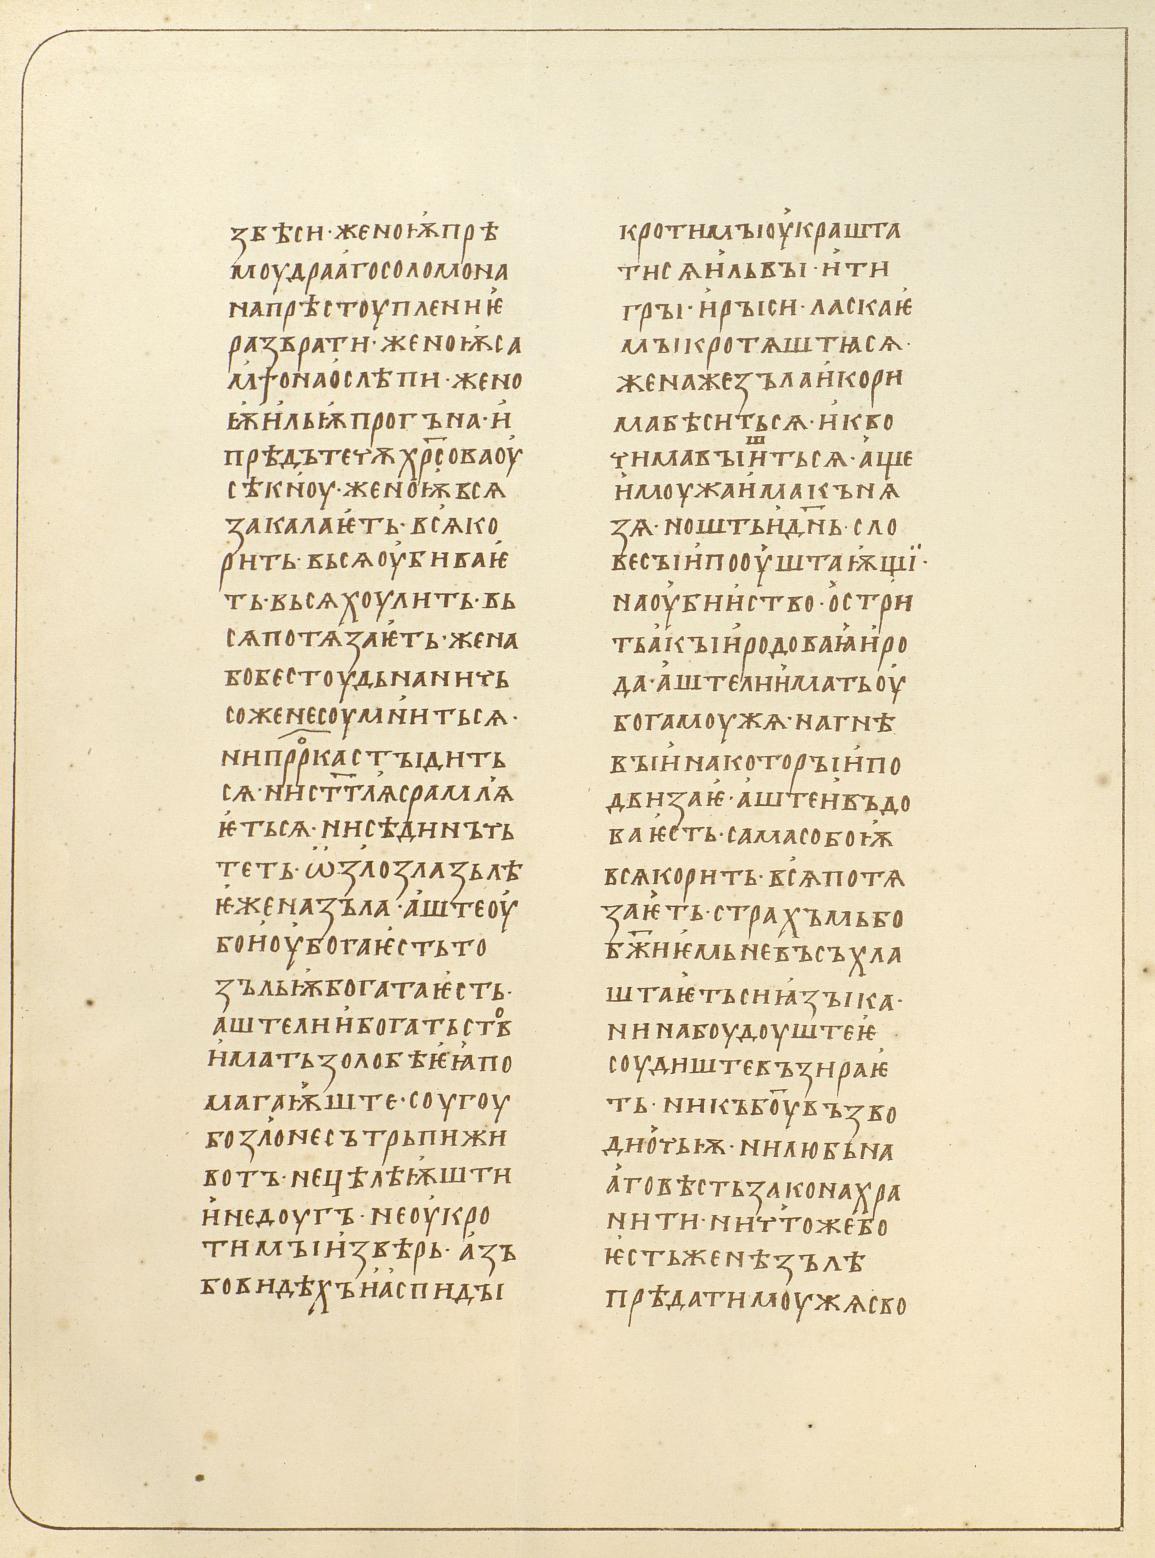 ꙁвѣси · женоѭ прѣ
моудрааго соломона
на прѣстоуплениѥ
раꙁврати · женоѭ са
мѱона ослѣпи · жено
ѭ ильѭ прогъна · и
прѣдътечѫ хр҃сова оу
сѣкноу · женоѭ вся
ꙁакалаѥть · вся ко
рить · вься оубиваѥ
ть · вься хоулить · вь
ся потяꙁаѥть · жена
бо бестоудьна ничь
соже не соумниться ·
ни прⷪ҇рка стыдить
ся · ни ст҃тля срамля
ѥться · ни сѣдинъ чь
теть · ѡ ꙁло ꙁла ꙁълѣ
ѥ жена ꙁъла · аште оу
бо и оубога ѥсть то
ꙁълъѭ богата ѥсть ·
аште ли и богатьствⷪ
имать ꙁолобѣ ѥꙗ по
магаѭште · соугоу
бо ꙁло несътрьпи жи
вотъ · нецѣлѣѭшти
и недоугъ · не оукро
тимыи ꙁвѣрь · аꙁъ
бо видѣхъ и аспиды
кротимы оукрашта
тися и львы · и ти
гры · и рыси · ласкаѥ
мы кротяштꙗся ·
жена же ꙁъла и кори
ма бѣситься · и кво
чима вышиться · аще
и моужа има къня
ꙁя · ношть и дн҃ь · сло
весы и пооуштаѭщї ·
на оубииство · остри
ть акы иродоваꙗ иро
да · аште ли имать оу
бога моужя · на гнѣ
вы и на которы и по
двиꙁаѥ · аште и въдо
ва ѥсть · сама собоѭ
вся корить · вся потя
ꙁаѥть · страхъмь бо
бж҃ниѥмь не въсъхла
штаѥть си ꙗꙁыка ·
ни на боудоуштеѥ
соудиште въꙁираѥ
ть · ни къ бо҃у въꙁво
дно чьѭ · ни любьна
аго вѣсть ꙁакона хра
нити · ничтоже бо
ѥсть женѣ ꙁълѣ
прѣдати моужя сво